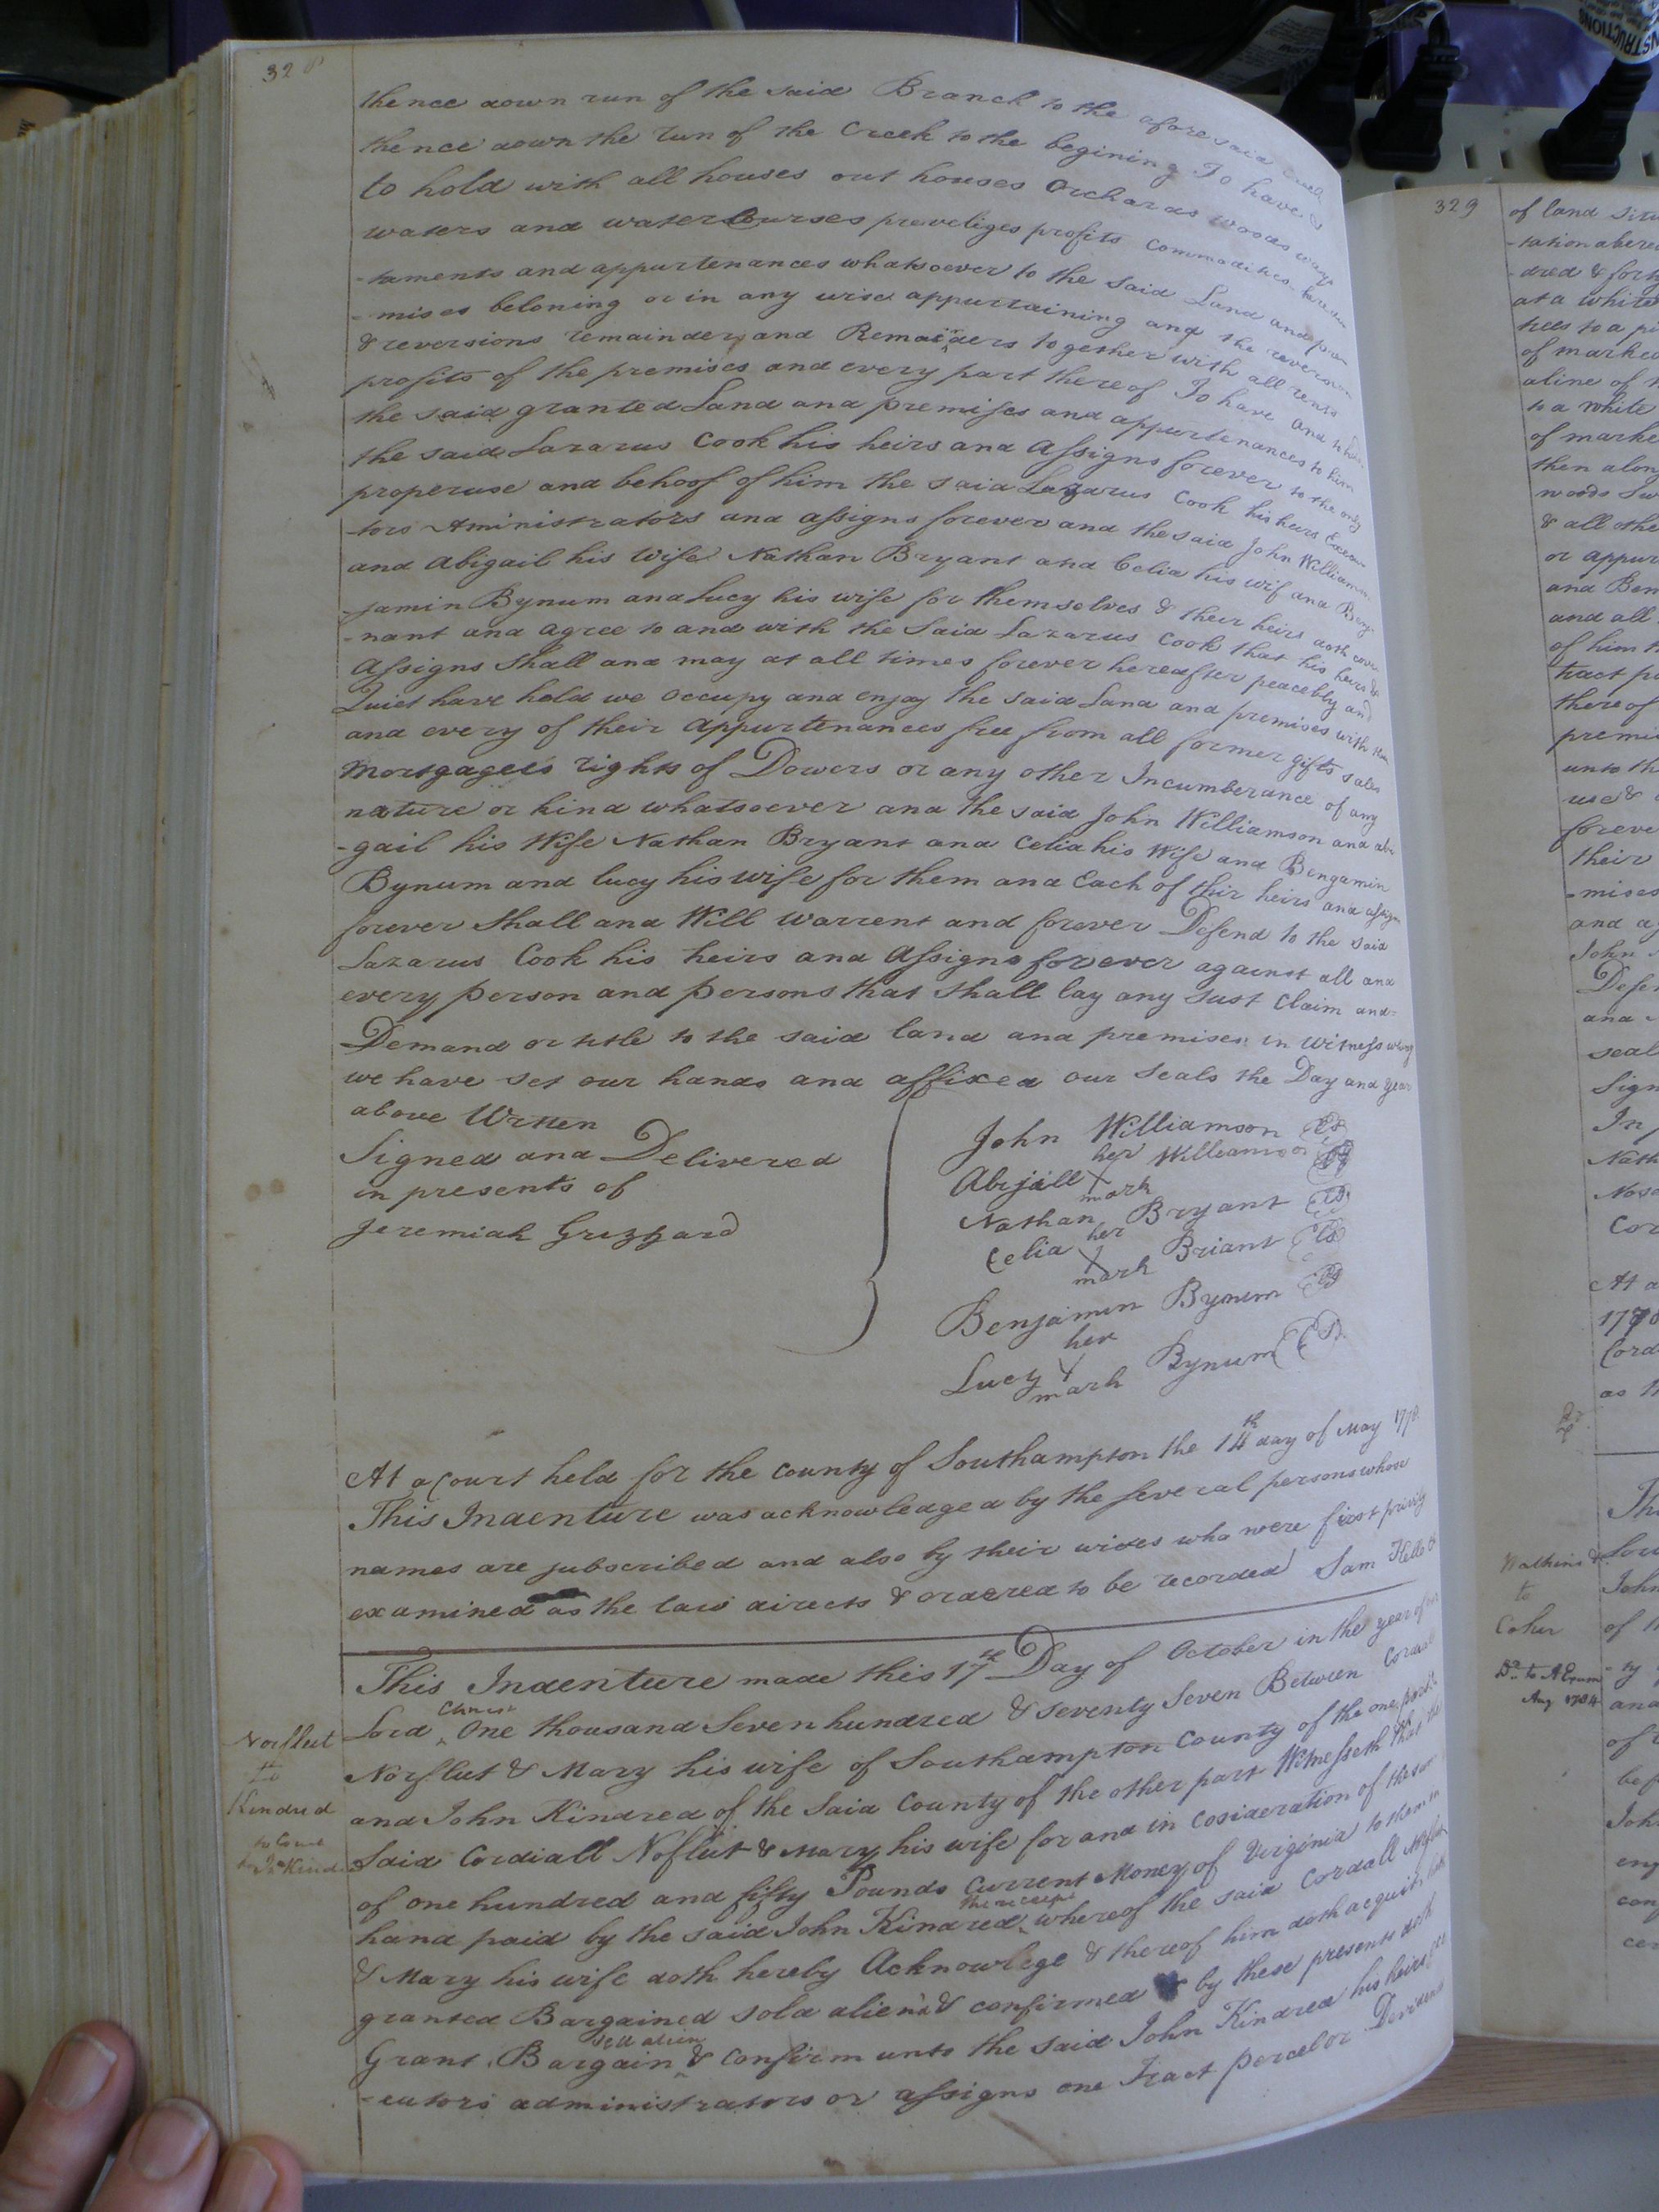 328
thence down run of the said Branch to the aforesaid
thence down the run of the Creek to the begining To have &
to hold with all houses out houses Orchards woods ways
waters and water Courses preveliges profits commodities heredi
-taments and appurtenances whatsoever to the said Land and pre
-mises beloning or in any wise appurtaining and the reversion
& reversions remainder and Remainders together with all rents
profits of the premises and every part there of To have and to hold
the said granted Land and premises and appurtenances to him
the said Lazarus Cook his heirs and Assigns forever to the only
properuse and behoof of him the said Lazarus Cook his heirs Execu
-tors Aministrators and assigns forever and the said John Williamson
and Abigail his Wife Nathan Bryant and Celia his wif and Ben
-jamin Bynum and Lucy his wife for themselves & their heirs doth cove
-nant and agree to and with the Said Lazarus Cook that his heirs &
Assigns Shall and may at all times forever hereafter peacebly and
Quiet have hold we occupy and enjoy the said Land and premises with
and every of their Appurtenances free from all former gifts sales
mortgagees rights of Dowers or any other Incumberance of any
nature or kind whatsoever and the said John Williamson and abi
-gail his Wife Nathan Bryant and Celia his Wife and Bengamin
Bynum and lucy his wife for them and Each of thir heirs and assigns
forever Shall and Will warrent and forever Defend to the said
Lazarus Cook his heirs and Assigns forever against all and
every person and persons that shall lay any Just Claim and
Demand or title to the said land and premises in witness
we have set our hands and affixed our seals the Day and year
above Wrtten
Signed and Delivered
in presents of
Jeremiah Grizzard
John Williamson
her
Abigaill X Williamson
mark
Nathan Bryant
her
Celia X Briant
mark
Benjamin Bynum
her
Lucy X Bynum
mark
At a Court held for the county of Southampton the 14th day of May
This Indenture was acknowledged by the several persons whose
names are subscribed and also by their wives who were first privily
examined as the law directs & ordered to be recorded Sam
This Indenture made this 17th Day of October in the year of
Christ
Lord One thousand Seven hundred & seventy Seven Between
Norfleet & Mary his wife of Southampton County of the one
and John Kindred of the Said County of the other part Witnesseth that the
Said Cordiall Nofleet & Mary his wife for and in Cosideration of the
of one hundred and fifty Pounds Current Money of Virginia to them in
the receipt
hand paid by the said John Kindred whereof the said Cordall
& Mary his wife doth hereby Acknowlege & thereof him doth acquit
granted Bargained sold aliend & confirmed by these presents doth
sell alien
Grant Bargain & Confirm unto the said John Kindred his heirs
-cutors administrators or assigns one Tract percel or
Norfleet
to
Kindred
329
of land
-tation
-dred & forty
at a white
trees to a
of marked
a line of
to a white
of marke
then along
woods
& all othe
or appur
and Ben
and all
of him
tract
there of
premi
unto th
use &
foreve
their
-mises
and
John
Defen
and
seal
Sign
In
Nath
At a
Cord
as
Th
Watkins
to
Coker
John
of
and
of
be
Joh